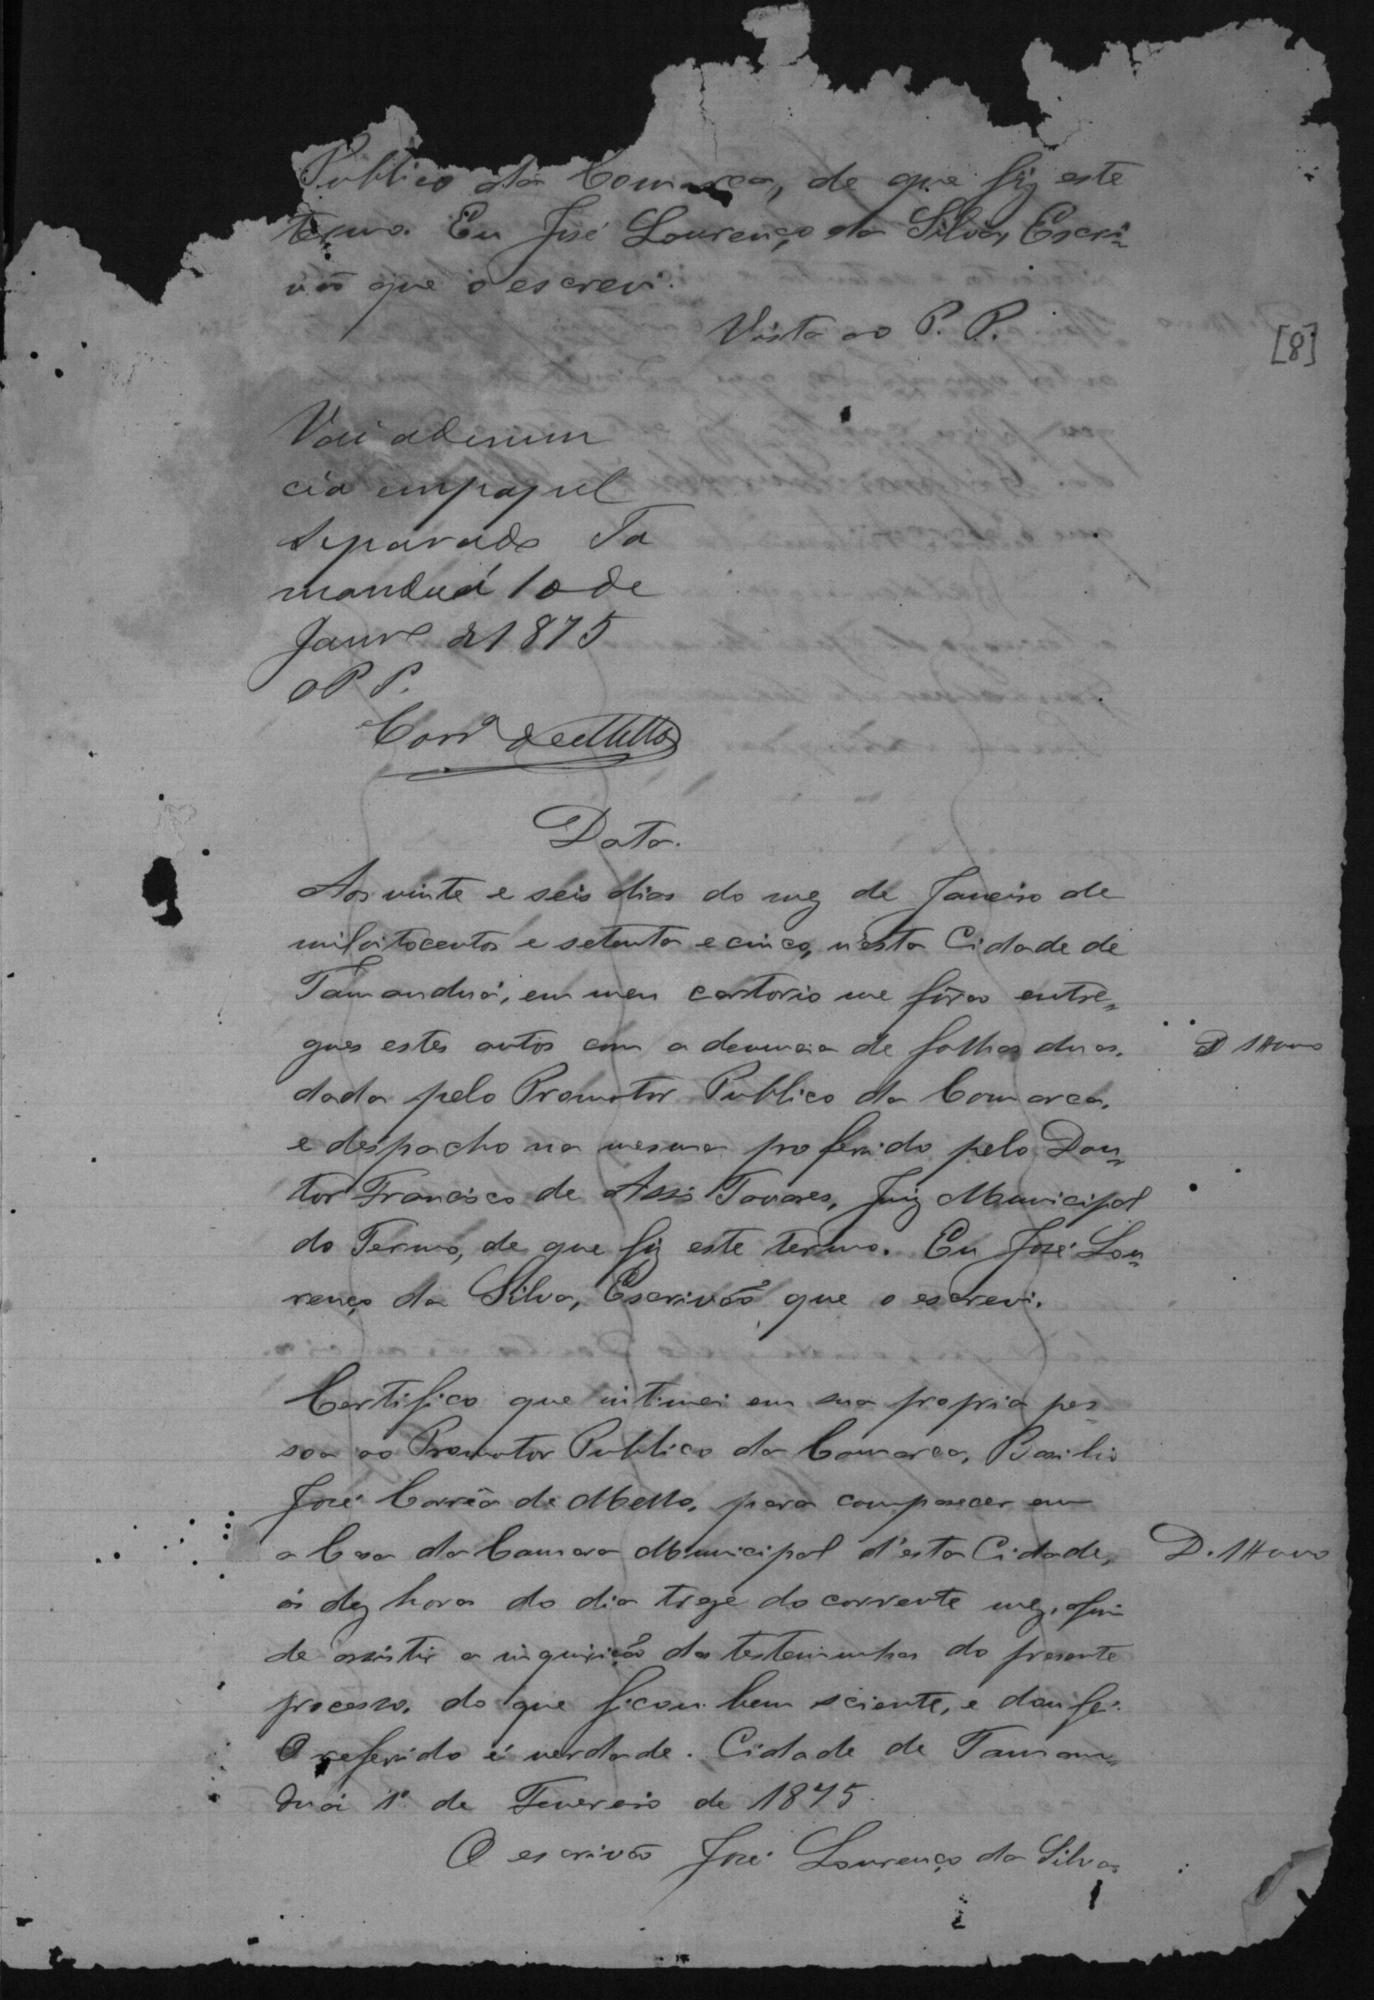 Publico da Comarca, de que fiz este
termo. Eu José Lourenço da Silva, Escri-
vão que o escrevi.
Vista ao P. P.
[8]
Vai a denun
cia em papel
separado Ta
manduá 10 de
Janrº de 1875
o P P.
Corrª de Mello
Data.
Aos vinte e seis dias do mez de Janeiro de
mil oitocentos e setenta e cinco, n'esta Cidade de
Tamanduá, em meu cartorio me fôrão entre-
gues estes autos com a denuncia de folhas duas,
dada pelo Promotor Publico da Comarca,
e despacho na mesma proferido pelo Dou-
tor Francisco de Assis Tavares, Juiz Municipal
do Termo, de que fiz este termo. Eu José Lou-
renço da Silva, Escrivão que o escrevi.
Certifico que intimei em sua propria pes-
soa ao Promotor Publico da Comarca, Basilio
José Corrêa de Mello, para comparecer em
a Casa da Camara Municipal d'esta Cidade,
ás dez horas do dia treze do corrente mez, afim
de assistir a inquirição das testemunhas do presente
processo, do que ficou bem sciente, e dou fé.
O referido é verdade. Cidade de Taman-
duá 1º de Fevereiro de 1875.
O escrivão José Lourenço da Silva